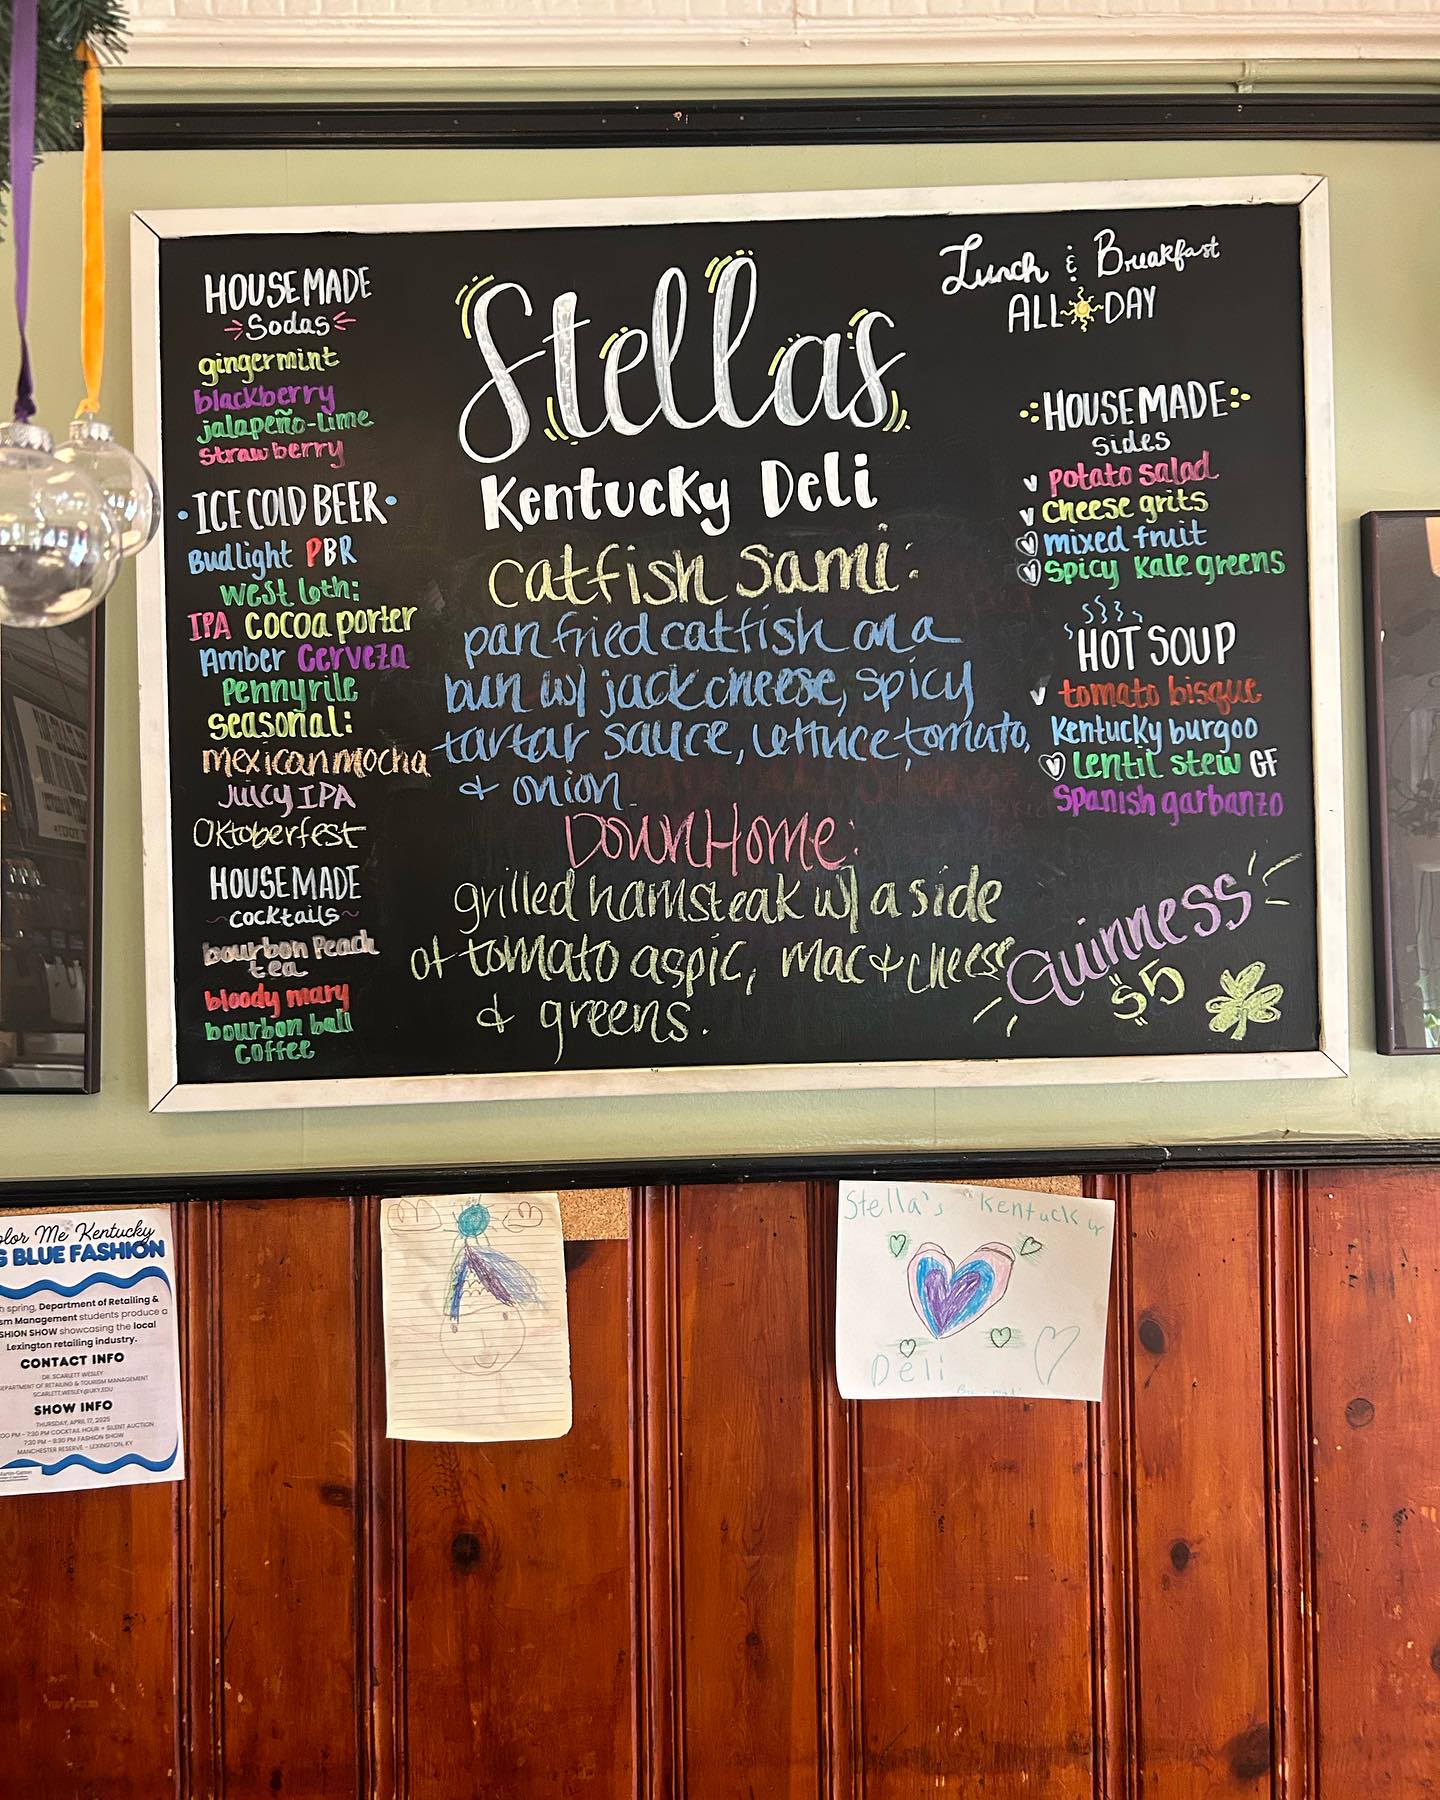 HOUSEMADE
Sodas
gingermint
blackberry
jalapeño-lime
strawberry
ICE COLD BEER
Bud light PBR
west 6th:
IPA cocoa porter
Amber Cerveza
Pennyrile
seasonal:
mexican mocha
juicy IPA
Oktoberfest
HOUSEMADE
cocktails
bourbon Peach
tea
bloody mary
bourbon ball
coffee
Stellas
Kentucky Deli
Catfish Sami:
pan fried catfish on a
bun w/ jack cheese, spicy
tartar sauce, lettuce, tomato,
& onion.
Down Home:
grilled hamsteak w/ a side
of tomato aspic, mac & cheese
& greens.
Lunch & Breakfast
ALL DAY
HOUSEMADE
Sides
v potato salad
v cheese grits
v mixed fruit
v spicy kale greens
HOT SOUP
v tomato bisque
Kentucky burgoo
v Lentil stew GF
Spanish garbanzo
Guinness
$5
olor Me Kentucky
G BLUE FASHION
h spring, Department of Retailing &
sm Management students produce a
SHION SHOW showcasing the local
Lexington retailing industry.
CONTACT INFO
DR. SCARLETT WESLEY
DEPARTMENT OF RETAILING & TOURISM MANAGEMENT
SCARLETT.WESLEY@UKY.EDU
SHOW INFO
THURSDAY, APRIL 17, 2025
:00 PM - 7:30 PM COCKTAIL HOUR + SILENT AUCTION
7:30 PM - 8:30 PM FASHION SHOW
MANCHESTER RESERVE - LEXINGTON, KY
Martin-Gatton
Stella's Kentucky
Deli